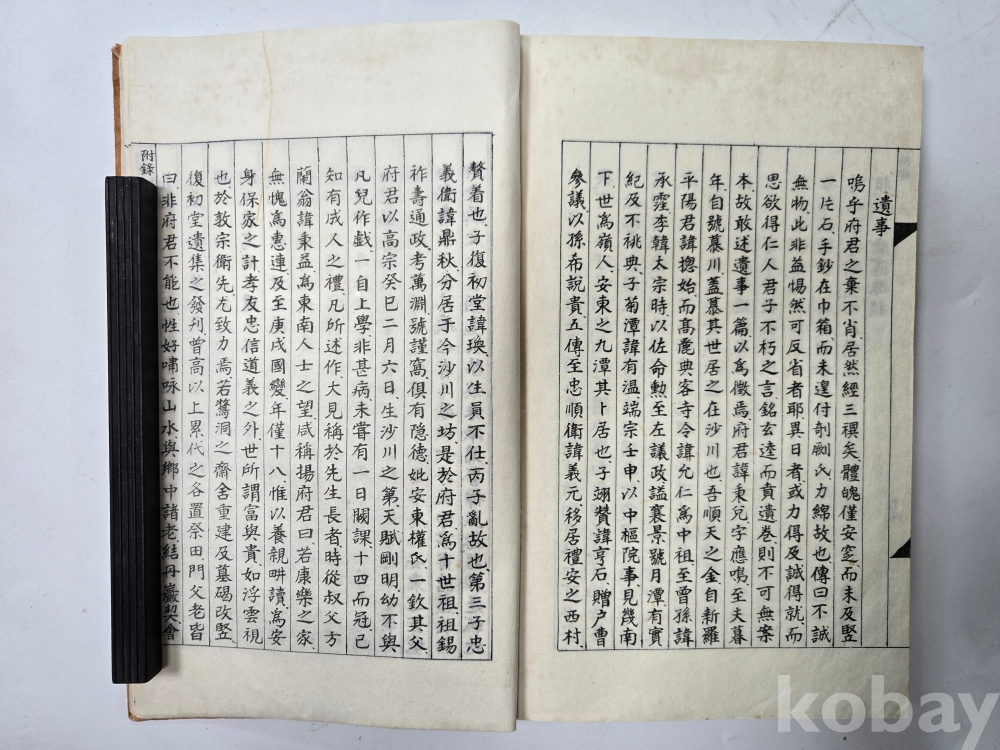 遺事
嗚乎府君之棄不肖居然經三禩矣體魄僅安窆而未及竪
一片石手鈔在巾箱而未遑付剞劂氏力綿故也傳曰不誠
無物此非益惕然可反省者耶異日者或力得及誠得就而
思欲得仁人君子不朽之言銘玄逵而賁遺卷則不可無案
本故敢述遺事一篇以爲徵焉府君諱秉兌字應鳴至夫暮
年自號慕川盖慕其世居之在沙川也吾順天之金自新羅
平陽君諱摠始而高麗典客寺令諱允仁爲中祖至曾孫諱
承霔李韓太宗時以佐命勲至左議政謚襄景號月潭有實
紀及不祧典子菊潭諱有温端宗壬申以中樞院事見幾南
下世爲嶺人安東之九潭其卜居也子翊贊諱亨石贈户曹
參議以孫希說貴五傳至忠順衛諱義元移居禮安之西村
贅着也子復初堂諱㻇以生員不仕丙子亂故也第三子忠
義衛諱鼎秋分居于今沙川之坊是於府君爲十世祖祖錫
祚壽通政考萬淵號謹窩俱有隐德妣安東權氏一欽其父
府君以高宗癸巳二月六日生沙川之第天賦剛明幼不與
凡兒作戲一自上學非甚病未嘗有一日闕課十四而冠已
知有成人之禮凡所述作大見稱於先生長者時從叔父方
蘭翁諱秉益爲東南人士之望咸稱揚府君曰若康樂之家
無愧爲惠連及至庚戌國變年僅十八惟以養親畊讀爲安
身保家之計孝友忠信道義之外世所謂富與貴如浮雲視
也於敦宗衛先尤致力焉若鶩洞之齋舍重建及墓碣改竪
復初堂遺集之發刋曾高以上累代之各置祭田門父老皆
曰非府君不能也性好嘯咏山水與鄉中諸老結丹巖契會
附錄
kobay